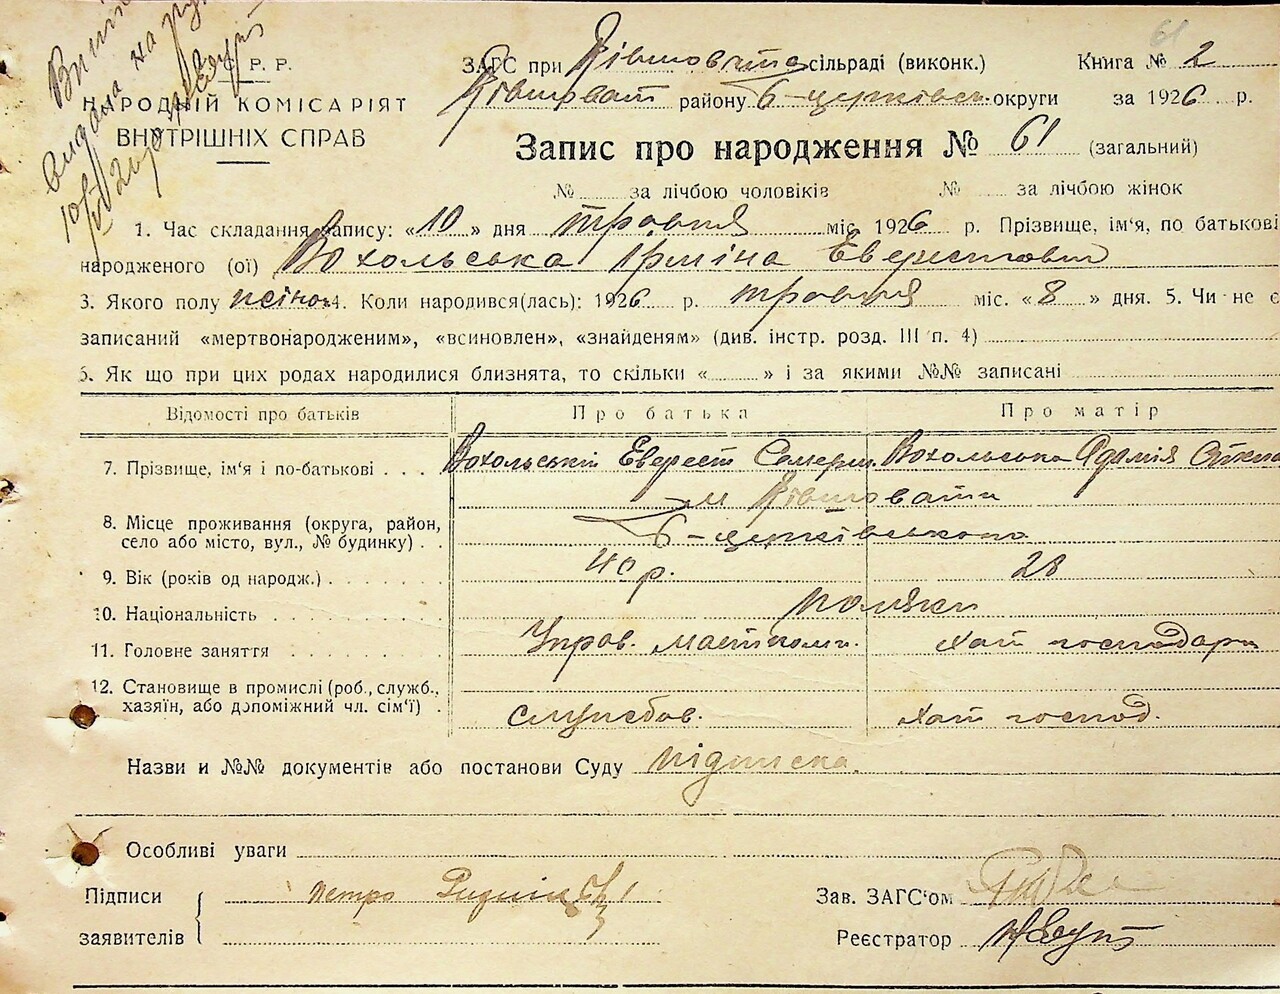 61
Р. Р.
НАРОДНІЙ КОМІСАРІЯТ
ВНУТРІШНІХ СПРАВ
ЗАГС при сільраді (виконк.) Книга № 2
району Б-церківськ округи за 1926 р.
Запис про народження № 61 (загальний)
№ за лічбою чоловіків № за лічбою жінок
1. Час складання запису: «10» дня травня міс 1926 р. Прізвище, ім'я, по батькові
народженого (ої) Вохольська Ірміна Еверестовна
3. Якого полу жіноч 4. Коли народився(лась): 1926 р. травня міс. «8» дня. 5. Чи не є
записаний «мертвонародженим», «всиновлен», «знайденям» (див. інстр. розд. III п. 4)
6. Як що при цих родах народилися близнята, то скільки « » і за якими №№ записані
Відомості про батьків Про батька Про матір
7. Прізвище, ім'я і по-батькові . . . Вохольський Еверест Вохольська
м
8. Місце проживання (округа, район,
село або місто, вул., № будинку) . . Б-церківського
9. Вік (років од народж.) 40 р. 28
10. Національність поляки
11. Головне заняття Управ. хат господарк
12. Становище в промислі (роб., служб.,
хазяїн, або допоміжний чл. сім'ї) . службов. хат господ.
Назви и №№ документів або постанови Суду підписка
Особливі уваги
Підписи петро Зав. ЗАГС'ом
заявителів Реєстратор